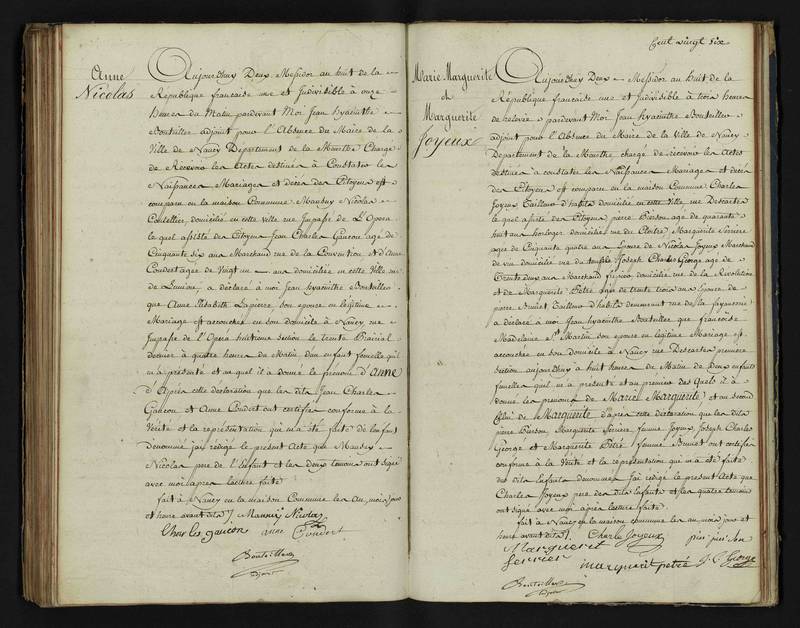 Anne
Nicolas
Aujourdhuy Deux Messidor an huit de la
République francaise une et Indivisible à onze
heures du Matin pardevant Moi Jean hyacinthe
Bouteiller adjoint pour l'Absence du Maire de la
Ville de Nancy Departement de la Meurthe Chargé
de Recevoir les Actes destinés à Constater les
Naissances Mariages et décès des Citoyens est
comparu en la maison Commune Mansuy Nicolas
domicilié en cette ville rue Impasse de L'Opera
lequel assisté des Citoyens Jean Charles Gaucon age de
Cinquante six ans Marchand rue de la Convention et d'Anne
Coudert agée de Vingt un ans domiciliés en cette Ville rue
de a déclaré à moi Jean hyacinthe Bouteiller
que Anne Elisabeth Lapierre son epouse en legitime
Mariage est accouchée en son domicile à Nancy rue
Impasse de l'Opera huitieme section le trente Prairial
dernier à quatre heures du Matin d'un enfant femelle qu'il
m'a présenté et auquel il à donné le prenom d'Anne
d'Après cette déclaration que les dits Jean Charles
Gaucon et Anne Coudert ont certifiée conforme à la
Vérité et la représentation qui m'a été faite de l'enfant
dénommé jai rédigé le present Acte que Mansuy
Nicolas pere de l'Enfant et les deux temoins ont signé
avec moi apres lecture faite
fait à Nancy en la maison Commune les an, mois jour
et heure avant dits Mansuy Nicolas
Charles gaucon anne Coudert
Bouteiller
Adjoint
Cent vingt six
Marie Marguerite
et
Marguerite
Joyeux
Aujourdhuy Deux Messidor an huit de la
République francaise une et Indivisible à trois heures
de relevée pardevant Moi Jean hyacinthe Bouteiller
adjoint pour l'Absence du Maire de la Ville de Nancy
Departement de la Meurthe chargé de recevoir les Actes
destinés à constater les Naissances Mariages et décès
des Citoyens est comparu en la maison Commune Charles
Joyeux Tailleur d'habits domicilié en cette Ville rue Descartes
lequel assisté des Citoyens pierre Pierson age de quarante
huit ans horloger domicilié rue du Cloitre Marguerite Serriere
agée de Cinquante quatre ans Epouse de Nicolas Joyeux Marchand
de vin domiciliée rue du temple Joseph Charles George age de
Trente deux ans Marchand fripier domicilié rue de la Revolution
et de Marguerite Petré agée de trente trois ans Epouse de
pierre Brunet Tailleur d'habits demeurant rue de la fayencerie
à déclaré à moi Jean hyacinthe Bouteiller que francoise
Madelaine St Martin son epouse en légitime Mariage est
accouchée en son domicile à Nancy rue Descartes premiere
Section aujourdhuy à huit heures du Matin de Deux enfants
femelles quil m'a présenté et au premier des Quels il à
donné les prenoms de Marie Marguerite et au second
celui de Marguerite d'après cette déclaration que les dits
pierre Pierson Marguerite Serriere femme Joyeux Joseph Charles
George et Marguerite Petré femme Brunet ont certifiée
conforme à la Vérité et la représentation qui m'a été faite
des dits Enfants dénommés Jai rédigé le present Acte que
Charles Joyeux pere des dits Enfants et les quatre temoins
ont signé avec moi après lecture faite
fait à Nancy en la maison commune les an, mois jour et
heure avant dits Charle Joyeux
Marguerit
Serrier marguerit petré J. C. George
Bouteiller
Adjoint